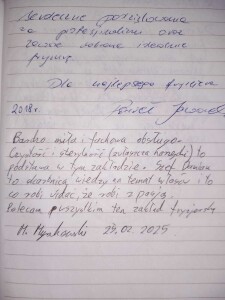 Serdeczne podziękowania
za profesjonalizm oraz
zawsze dobrane idealnie
fryzury.
Dla najlepszego fryzjera
2018r. Paweł
Bardzo miła i fachowa obsługa.
Czystość i sterylność (zwłaszcza narzędzi) to
podstawa w tym zakładzie. Szef Damian
to skarbnica wiedzy na temat włosów i to
co robi widać, że robi z pasją.
Polecam wszystkim ten zakład fryzjerski
M. Mynkowski 29.02.2025